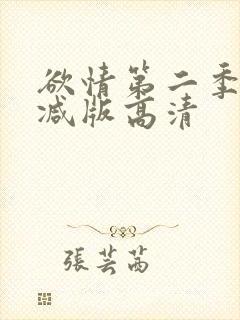 欲情第二季
减版高清
張芸茜